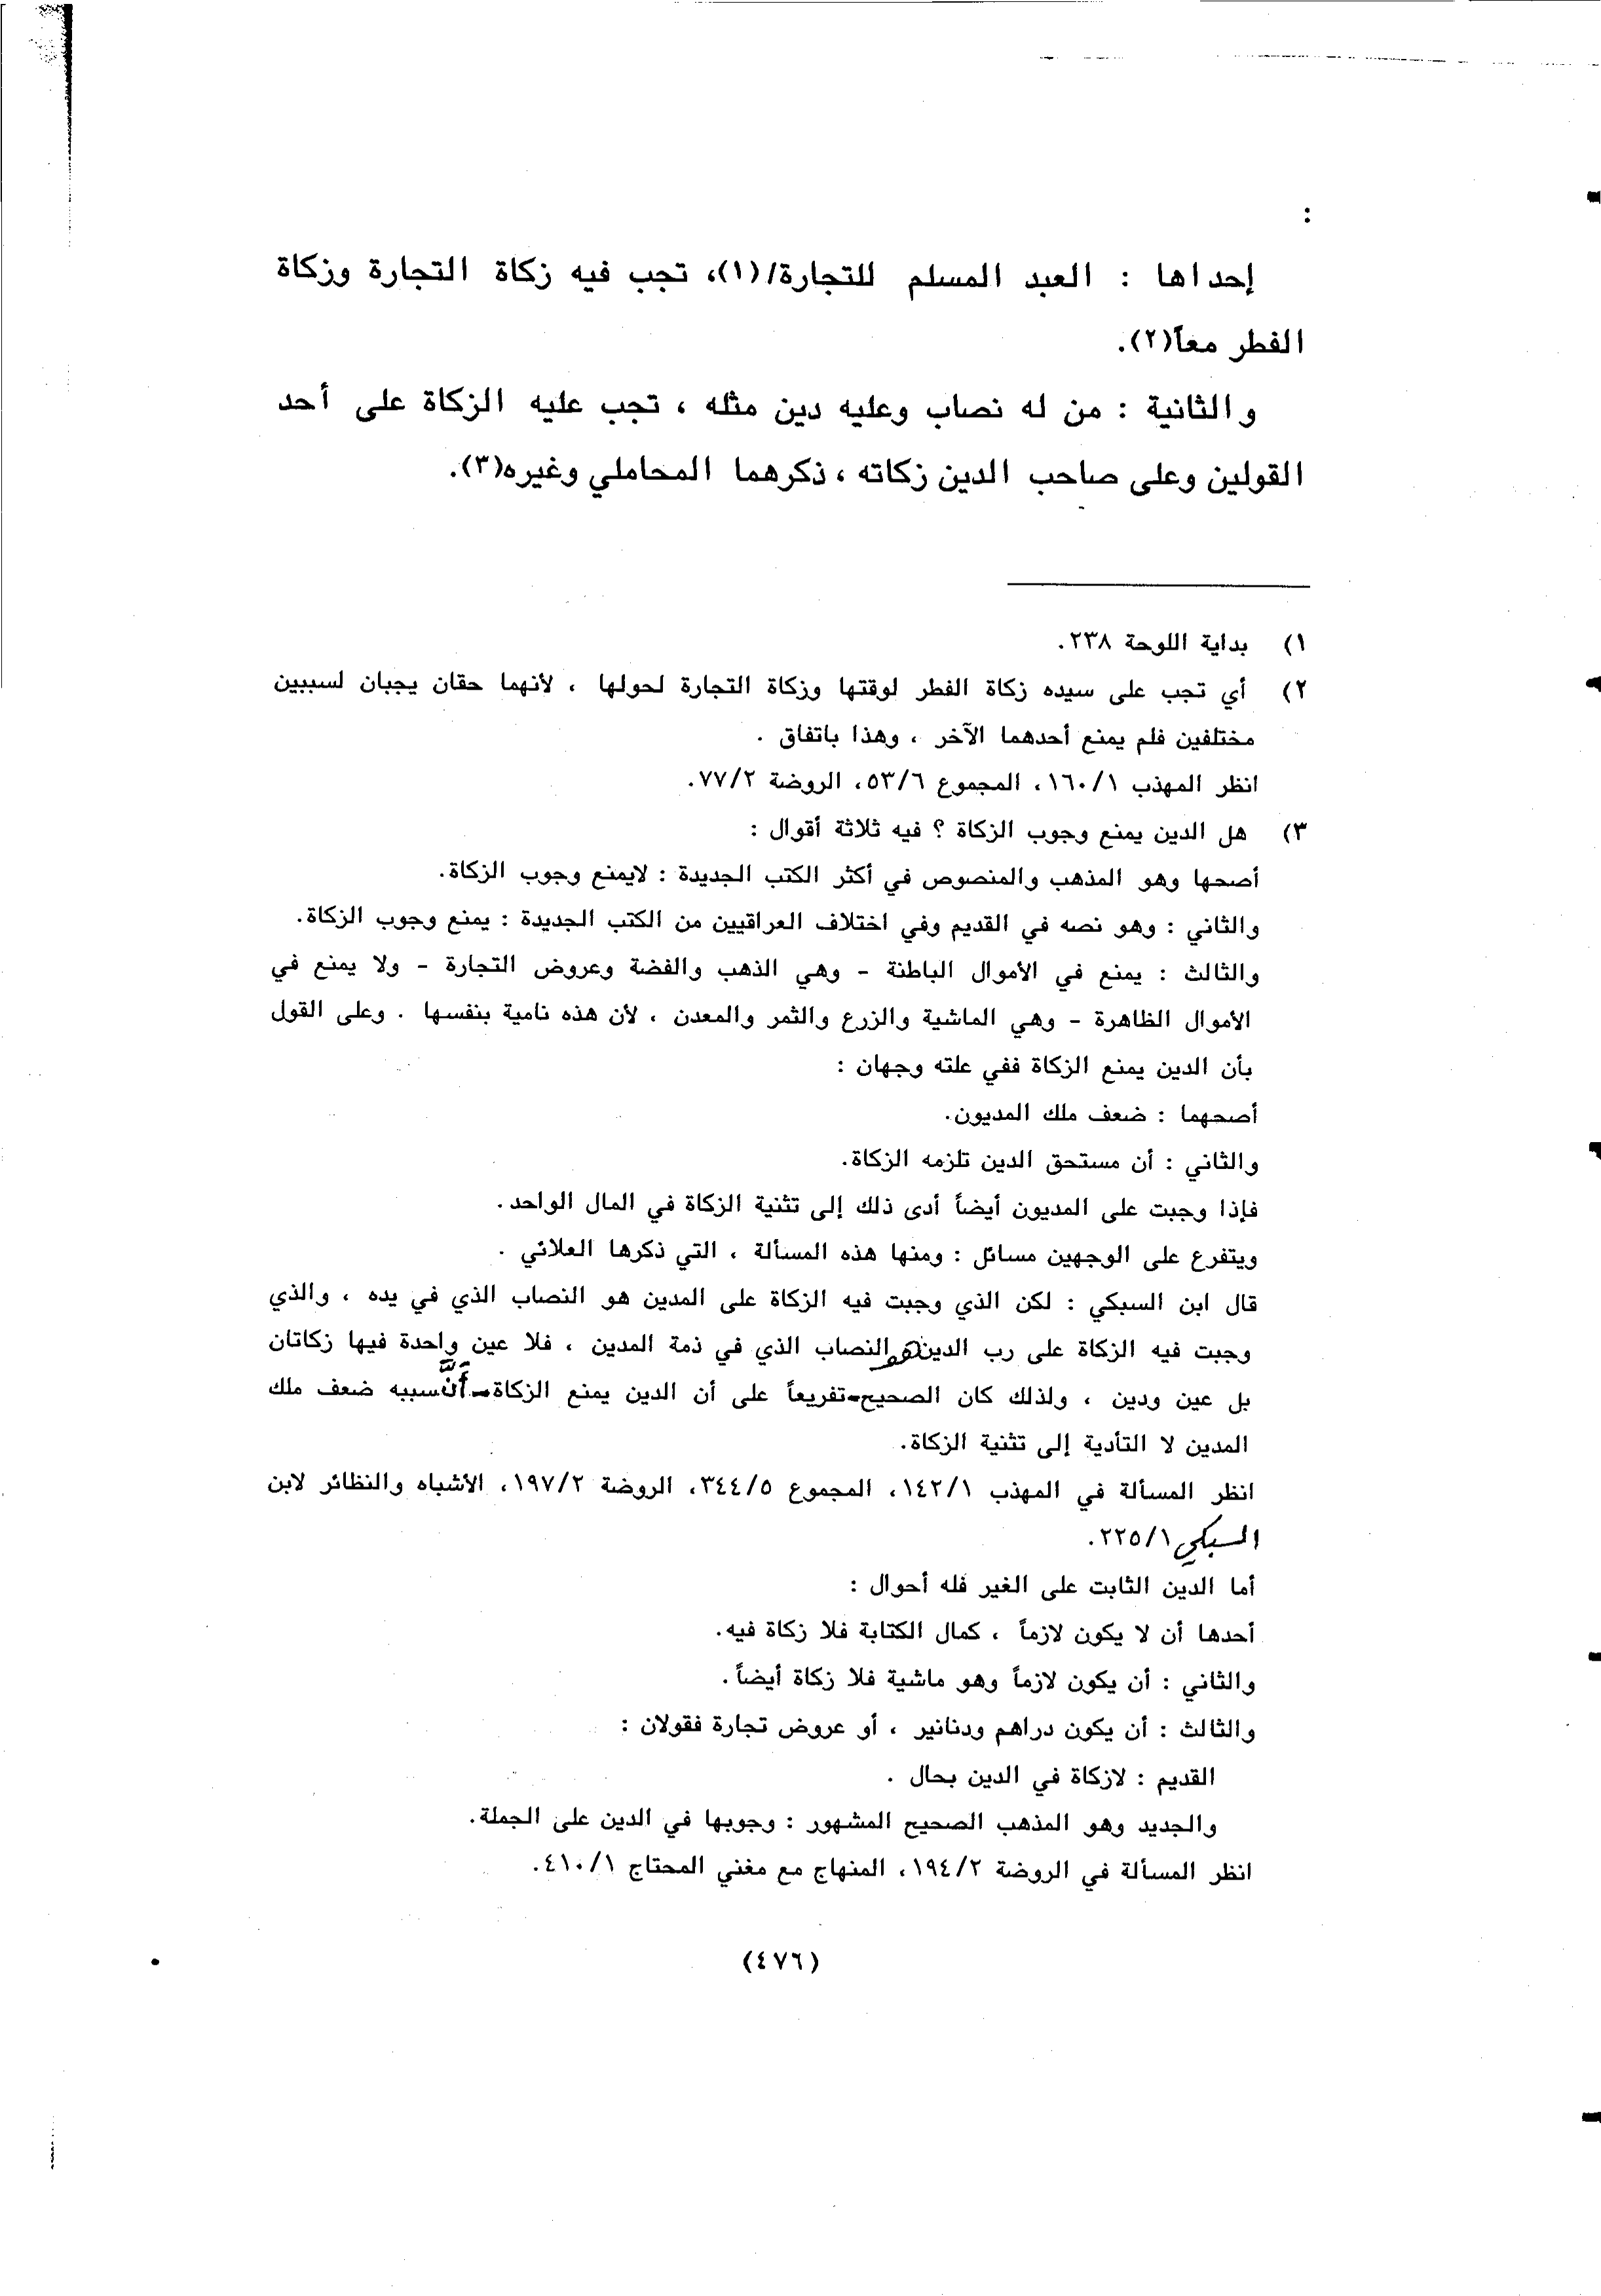 :
إحداها : العبد المسلم للتجارة/(١)، تجب فيه زكاة التجارة وزكاة
الفطر معاً(٢).
والثانية : من له نصاب وعليه دين مثله ، تجب عليه الزكاة على أحد
القولين وعلى صاحب الدين زكاته ، ذكرهما المحاملي وغيره(٣).
١) بداية اللوحة ٢٣٨.
٢) أي تجب على سيده زكاة الفطر لوقتها وزكاة التجارة لحولها ، لأنهما حقان يجبان لسببين
مختلفين فلم يمنع أحدهما الآخر ، وهذا باتفاق .
انظر المهذب ١٦٠/١، المجموع ٥٣/٦، الروضة ٧٧/٢.
٣) هل الدين يمنع وجوب الزكاة ؟ فيه ثلاثة أقوال :
أصحها وهو المذهب والمنصوص في أكثر الكتب الجديدة : لايمنع وجوب الزكاة.
والثاني : وهو نصه في القديم وفي اختلاف العراقيين من الكتب الجديدة : يمنع وجوب الزكاة.
والثالث : يمنع في الأموال الباطنة - وهي الذهب والفضة وعروض التجارة - ولا يمنع في
الأموال الظاهرة - وهي الماشية والزرع والثمر والمعدن ، لأن هذه نامية بنفسها . وعلى القول
بأن الدين يمنع الزكاة ففي علته وجهان :
أصحهما : ضعف ملك المديون.
والثاني : أن مستحق الدين تلزمه الزكاة.
فإذا وجبت على المديون أيضاً أدى ذلك إلى تثنية الزكاة في المال الواحد.
ويتفرع على الوجهين مسائل : ومنها هذه المسألة ، التي ذكرها العلائي .
قال ابن السبكي : لكن الذي وجبت فيه الزكاة على المدين هو النصاب الذي في يده ، والذي
وجبت فيه الزكاة على رب الدين هو النصاب الذي في ذمة المدين ، فلا عين واحدة فيها زكاتان
بل عين ودين ، ولذلك كان الصحيح-تفريعاً على أن الدين يمنع الزكاة-أنَّ سببه ضعف ملك
المدين لا التأدية إلى تثنية الزكاة.
انظر المسألة في المهذب ١٤٢/١، المجموع ٣٤٤/٥، الروضة ١٩٧/٢، الأشباه والنظائر لابن
السبكي ٢٢٥/١.
أما الدين الثابت على الغير فله أحوال :
أحدها أن لا يكون لازماً ، كمال الكتابة فلا زكاة فيه.
والثاني : أن يكون لازماً وهو ماشية فلا زكاة أيضاً.
والثالث : أن يكون دراهم ودنانير ، أو عروض تجارة فقولان :
القديم : لازكاة في الدين بحال .
والجديد وهو المذهب الصحيح المشهور : وجوبها في الدين على الجملة.
انظر المسألة في الروضة ١٩٤/٢، المنهاج مع مغني المحتاج ٤١٠/١.
(٤٧٦)